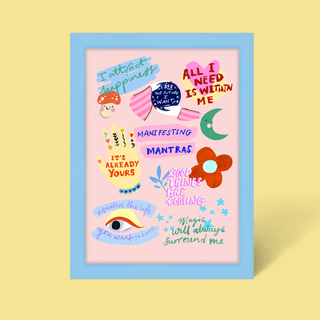 I attract
happiness
ALL I
NEED
IS WITHIN
ME
I SEE
THE FUTURE
I WANT
MANIFESTING
MANTRAS
IT'S
ALREADY
YOURS
GOOD
THINGS
ARE
COMING
visualise the life
you want to have
Magic
will always
surround me